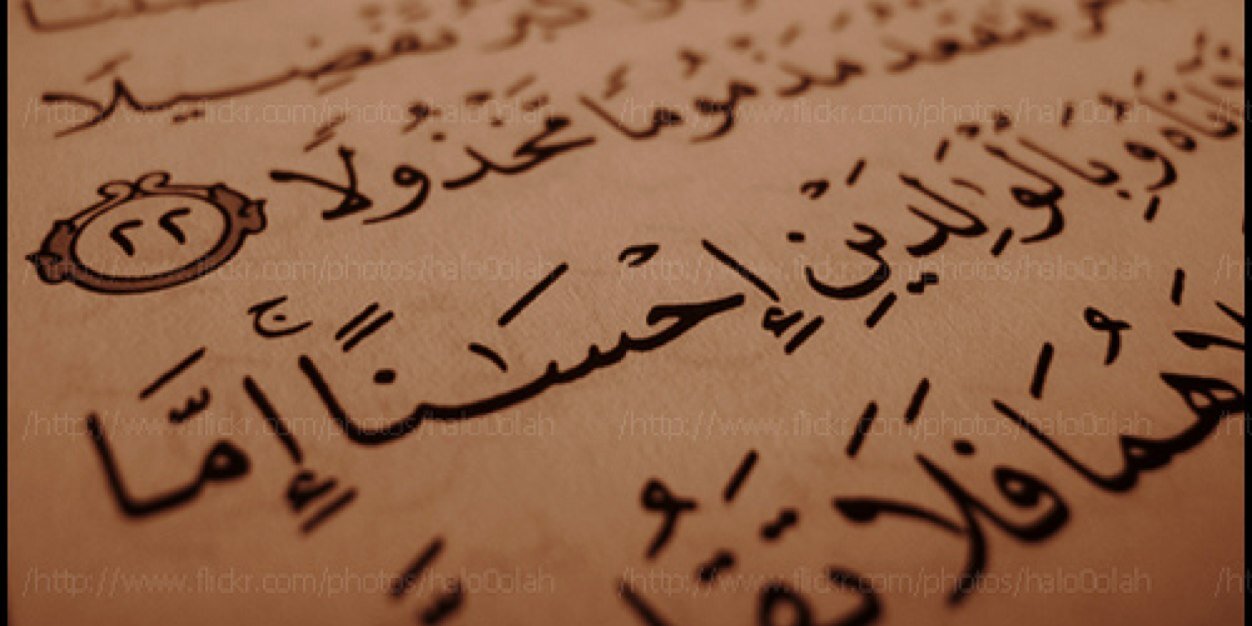 تَفْضِيلًا
فَتَقْعُدَ مَذْمُومًا مَّخْذُولًا ٢٢
وَبِٱلْوَٰلِدَيْنِ إِحْسَـٰنًا ۚ إِمَّا
هُمَا فَلَا
/http://www.flickr.com/photos/halo0olah /http://www.flickr.com/photos/halo0olah
/http://www.flickr.com/photos/halo0olah /http://www.flickr.com/photos/halo0olah
/http://www.flickr.com/photos/halo0olah /http://www.flickr.com/photos/halo0olah
/http://www.flickr.com/photos/halo0olah /http://www.flickr.com/photos/halo0olah